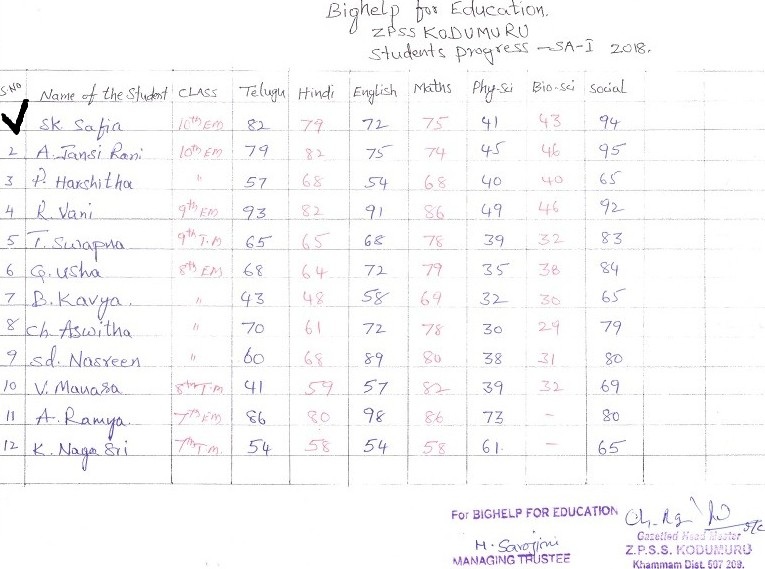 Bighelp for Education.
ZPSS KODUMURU
Students progress - SA-I 2018.
S.NO Name of the Student CLASS Telugu Hindi English Maths Phy-sci Bio-sci Social
SK. Safia 10th EM 82 79 72 75 41 43 94
2 A. Jansi Rani 10th EM 79 82 75 74 45 46 95
3 P. Harshitha " 57 68 54 68 40 40 65
4 R. Vani 9th EM 93 82 91 86 49 46 92
5 T. Swapna 9th T.M 65 65 68 78 39 32 83
6 G. Usha 8th EM 68 64 72 79 35 38 84
7 B. Kavya. " 43 48 58 69 32 30 65
8 Ch. Aswitha " 70 61 72 78 30 29 79
9 Sd. Nasreen " 60 68 89 80 38 31 80
10 V. Manasa 8th T.M 41 59 57 82 39 32 69
11 A. Ramya. 7th EM 86 80 98 86 73 - 80
12 K. Naga Sri 7th T.M. 54 58 54 58 61. - 65
For BIGHELP FOR EDUCATION
M. Sarojini
MANAGING TRUSTEE
Gazetted Head Master
Z.P.S.S. KODUMURU
Khammam Dist. 507 209.